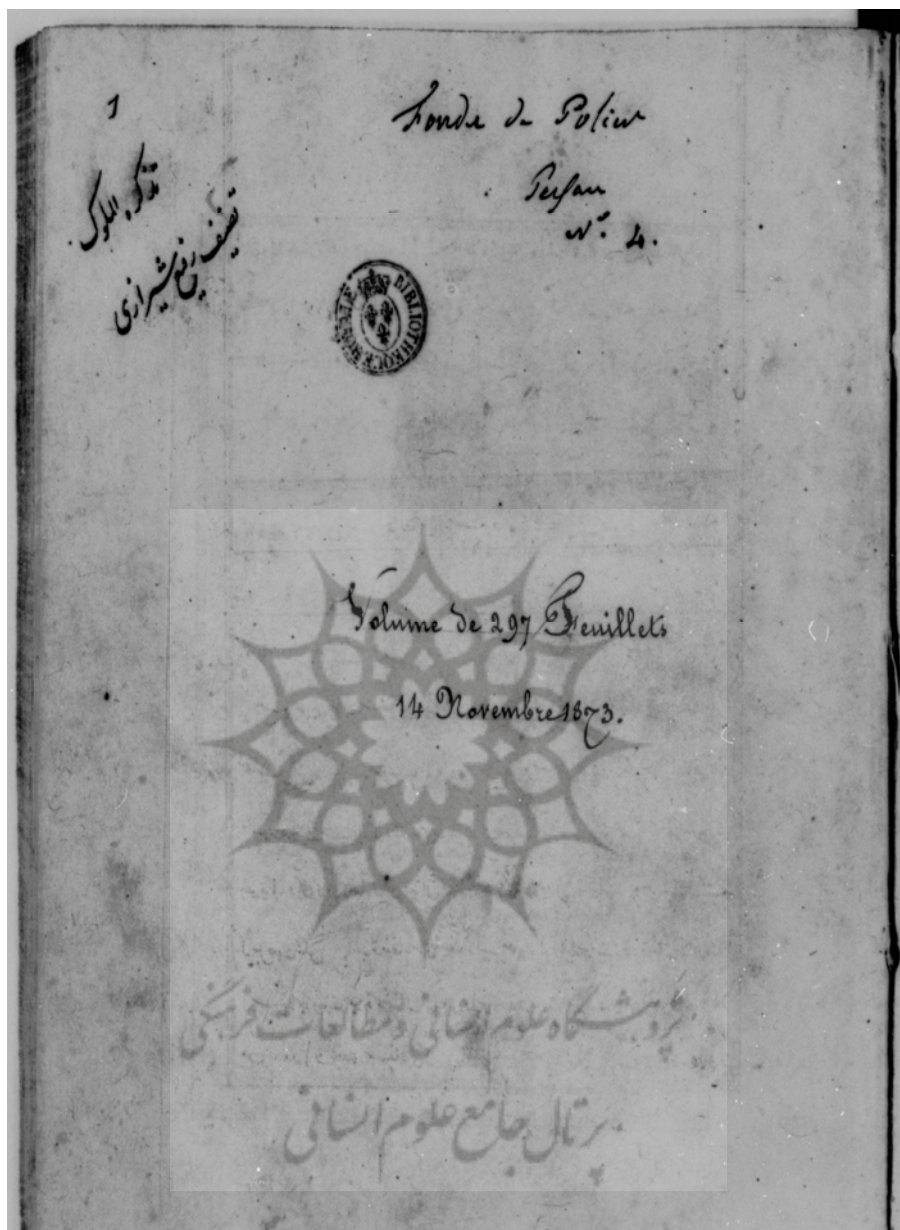 1
تذكره الملوك
تصنیف رفیع شیرازی
Fonds de Polier
Persan
N.° 4.
BIBLIOTHEQUE ROYALE
Volume de 297 Feuillets
14 Novembre 1873.
پژوهشگاه علوم انسانی و مطالعات فرهنگی
پرتال جامع علوم انسانی